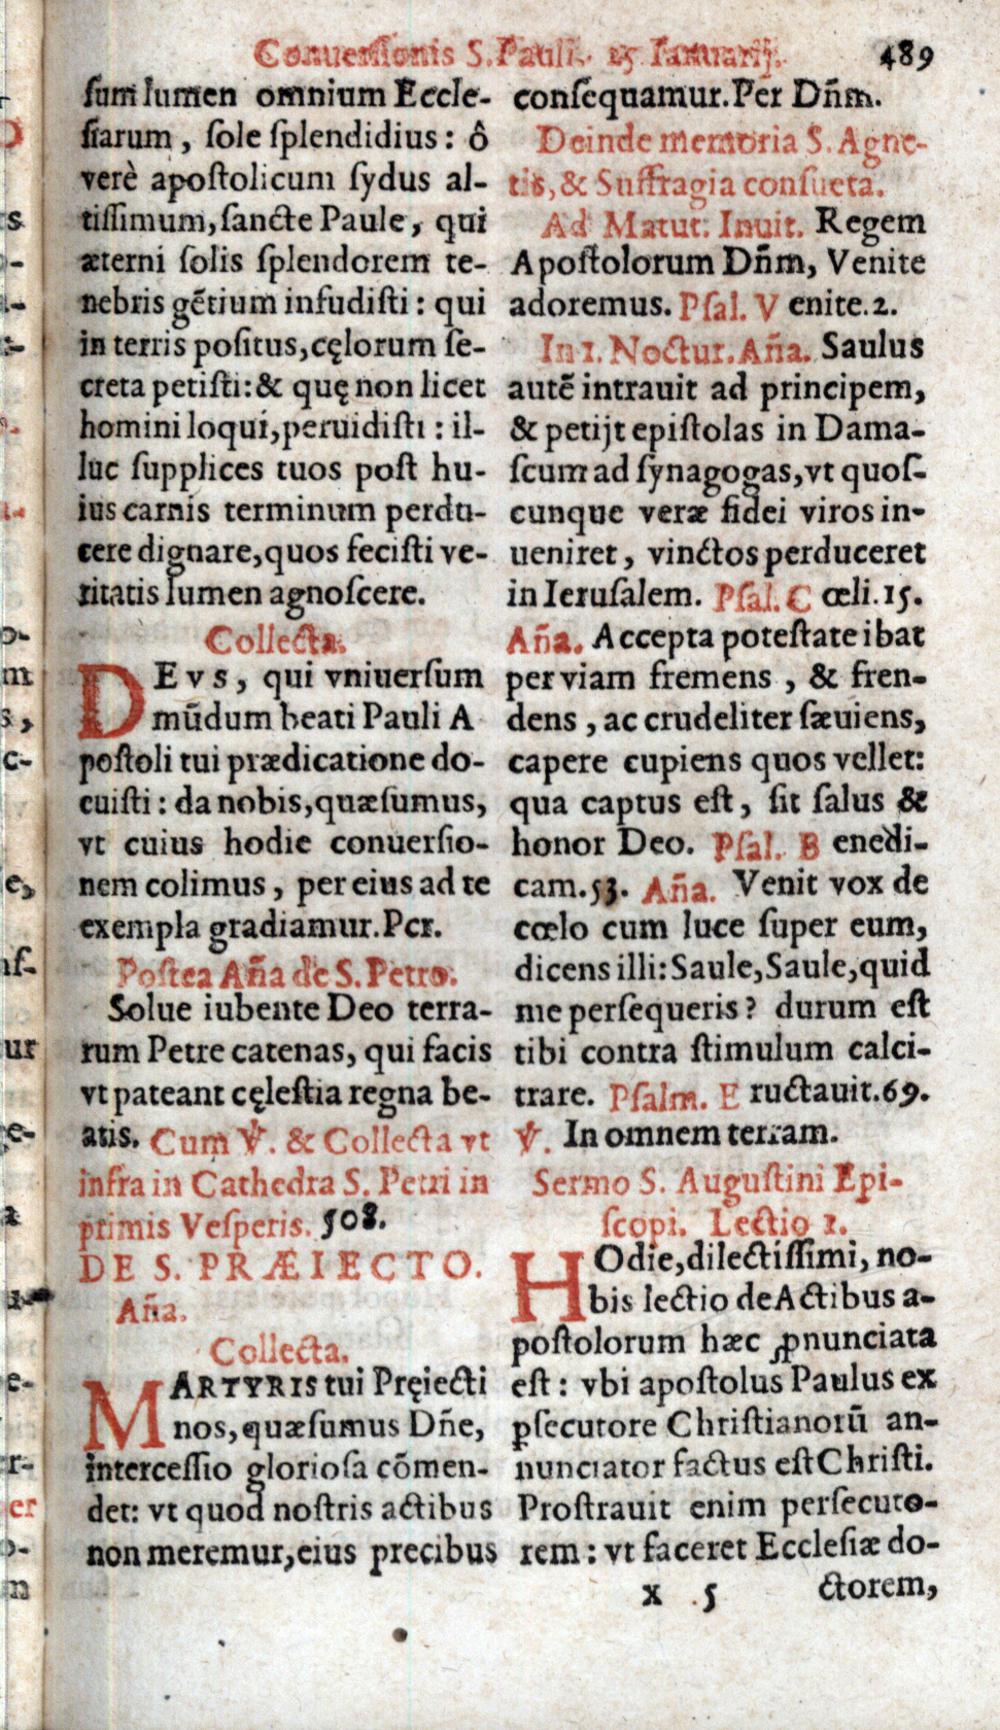 Conuersionis S. Pauli. 25 Ianuarij. 489
sum lumen omnium Eccle-
siarum, sole splendidius: ô
verè apostolicum sydus al-
tissimum, sancte Paule, qui
æterni solis splendorem te-
nebris gẽtium infudisti: qui
in terris positus, cęlorum se-
creta petisti: & quę non licet
homini loqui, peruidisti: il-
luc supplices tuos post hu-
ius carnis terminum perdu-
cere dignare, quos fecisti ve-
ritatis lumen agnoscere.
Collecta.
DEVS, qui vniuersum
mũdum beati Pauli A
postoli tui prædicatione do-
cuisti: da nobis, quæsumus,
vt cuius hodie conuersio-
nem colimus, per eius ad te
exempla gradiamur. Per.
Postea Aña de S. Petro.
Solue iubente Deo terra-
rum Petre catenas, qui facis
vt pateant cęlestia regna be-
atis. Cum ℣. & Collecta vt
infra in Cathedra S. Petri in
primis Vesperis. 508.
DE S. PRÆIECTO.
Aña.
Collecta.
MARTYRIS tui Pręiecti
nos, quæsumus Dñe,
intercessio gloriosa cõmen-
det: vt quod nostris actibus
non meremur, eius precibus
consequamur. Per Dñm.
Deinde memoria S. Agne-
tis, & Suffragia consueta.
Ad Matut. Inuit. Regem
Apostolorum Dñm, Venite
adoremus. Psal. Venite. 2.
In 1. Noctur. Aña. Saulus
autẽ intrauit ad principem,
& petijt epistolas in Dama-
scum ad synagogas, vt quos-
cunque veræ fidei viros in-
ueniret, vinctos perduceret
in Ierusalem. Psal. Cœli. 15.
Aña. Accepta potestate ibat
per viam fremens, & fren-
dens, ac crudeliter sæuiens,
capere cupiens quos vellet:
qua captus est, sit salus &
honor Deo. Psal. Benedi-
cam. 53. Aña. Venit vox de
cœlo cum luce super eum,
dicens illi: Saule, Saule, quid
me persequeris? durum est
tibi contra stimulum calci-
trare. Psalm. Eructauit. 69.
℣. In omnem terram.
Sermo S. Augustini Epi-
scopi. Lectio 1.
HOdie, dilectissimi, no-
bis lectio de Actibus a-
postolorum hæc ꝓnunciata
est: vbi apostolus Paulus ex
ꝑsecutore Christianorũ an-
nunciator factus est Christi.
Prostrauit enim persecuto-
rem: vt faceret Ecclesiæ do-
x 5 ctorem,